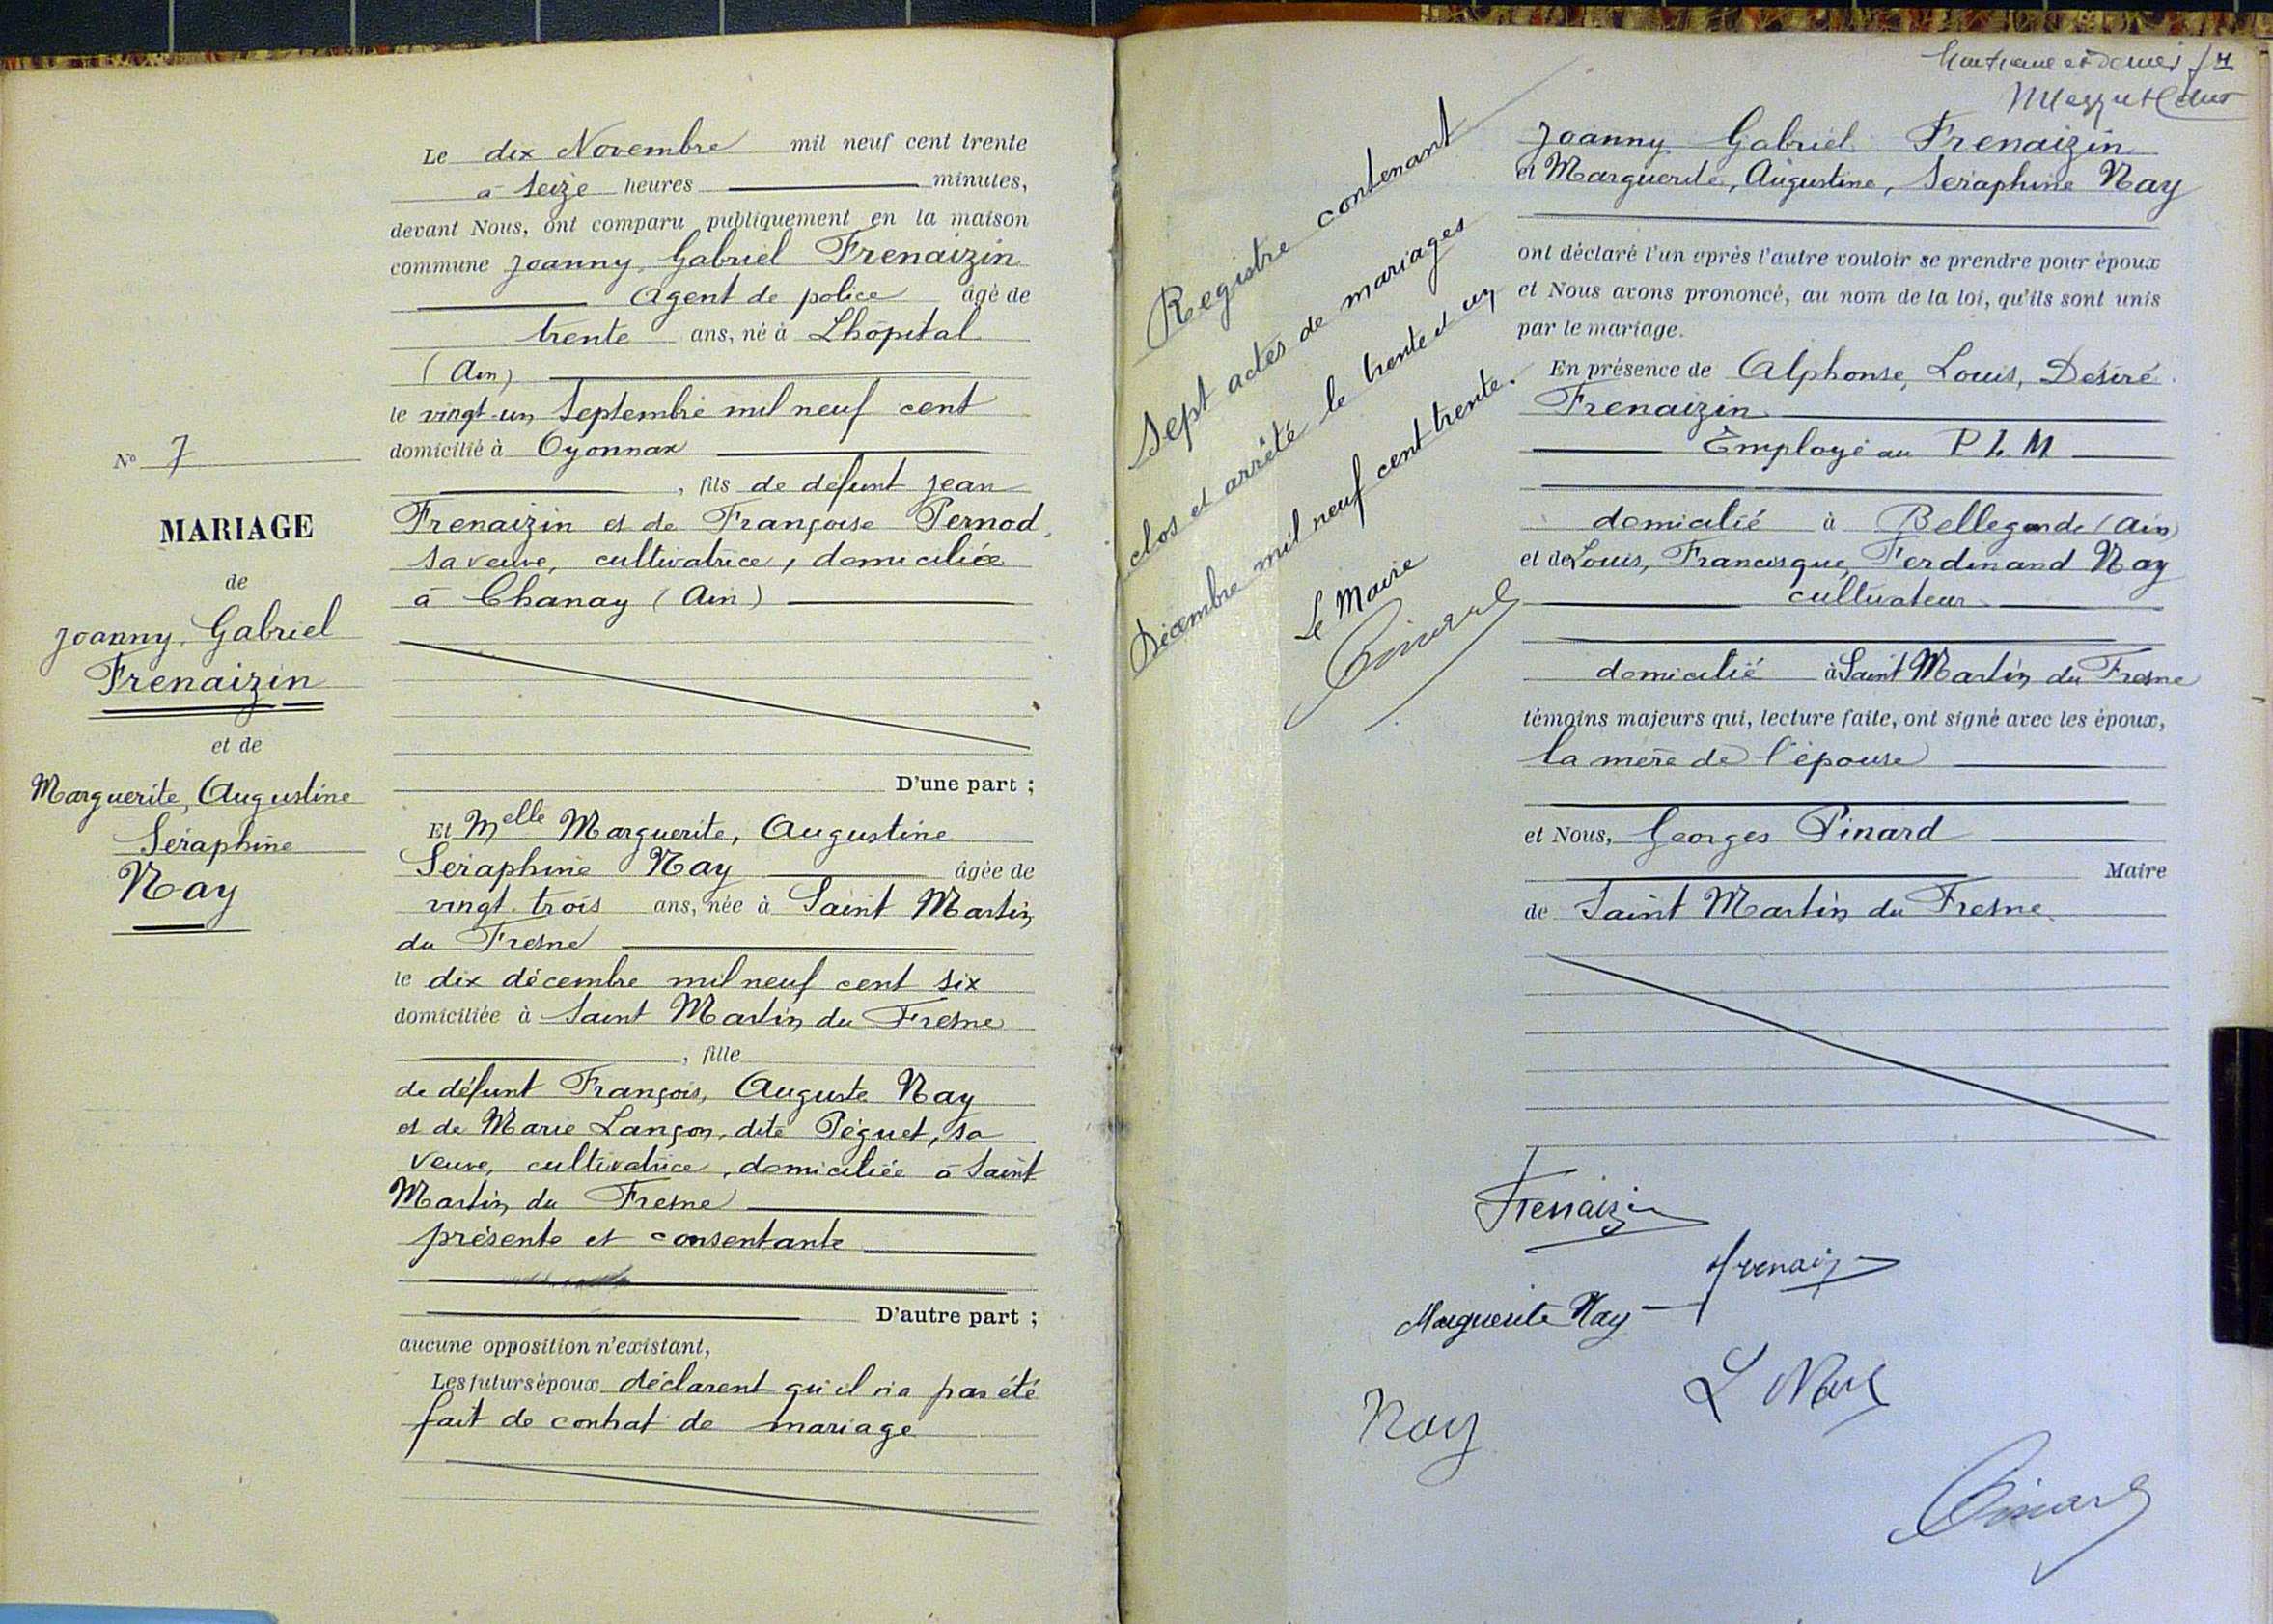 N° 7
MARIAGE
de
Joanny, Gabriel
Frenaizin
et de
Marguerite, Augustine
Séraphine
Nay
Le dix Novembre mil neuf cent trente
à seize heures minutes,
devant Nous, ont comparu publiquement en la maison
commune Joanny, Gabriel Frenaizin
Agent de police âgé de
trente ans, né à Lhôpital
(Ain)
le vingt-un Septembre mil neuf cent
domicilié à Oyonnax
, fils de défunt Jean
Frenaizin et de Françoise Pernod,
sa veuve, cultivatrice, domiciliée
à Chanay (Ain)
D'une part ;
Et Melle Marguerite, Augustine
Séraphine Nay âgée de
vingt-trois ans, née à Saint Martin
du Fresne
le dix décembre mil neuf cent six
domiciliée à Saint Martin du Fresne
, fille
de défunt François, Auguste Nay
et de Marie Lançon, dite Péguet, sa
veuve, cultivatrice, domiciliée à Saint
Martin du Fresne
présente et consentante
D'autre part ;
aucune opposition n'existant,
Les futurs époux déclarent qu'il n'a pas été
fait de contrat de mariage
Registre contenant
Sept actes de mariages
clos et arrêté le trente et un
Décembre mil neuf cent trente.
Le Maire
Pinard
et dernier
Joanny Gabriel Frenaizin
et Marguerite, Augustine, Séraphine Nay
ont déclaré l'un après l'autre vouloir se prendre pour époux
et Nous avons prononcé, au nom de la loi, qu'ils sont unis
par le mariage.
En présence de Alphonse, Louis, Désiré
Frenaizin
Employé au P L M
domicilié à Bellegarde (Ain)
et de Louis, Francisque, Ferdinand Nay
cultivateur
domicilié à Saint Martin du Fresne
témoins majeurs qui, lecture faite, ont signé avec les époux,
la mère de l'épouse
et Nous, Georges Pinard
Maire
de Saint Martin du Fresne
Frenaizin
Frenaizin
Marguerite Nay
L Nay
Nay
Pinard